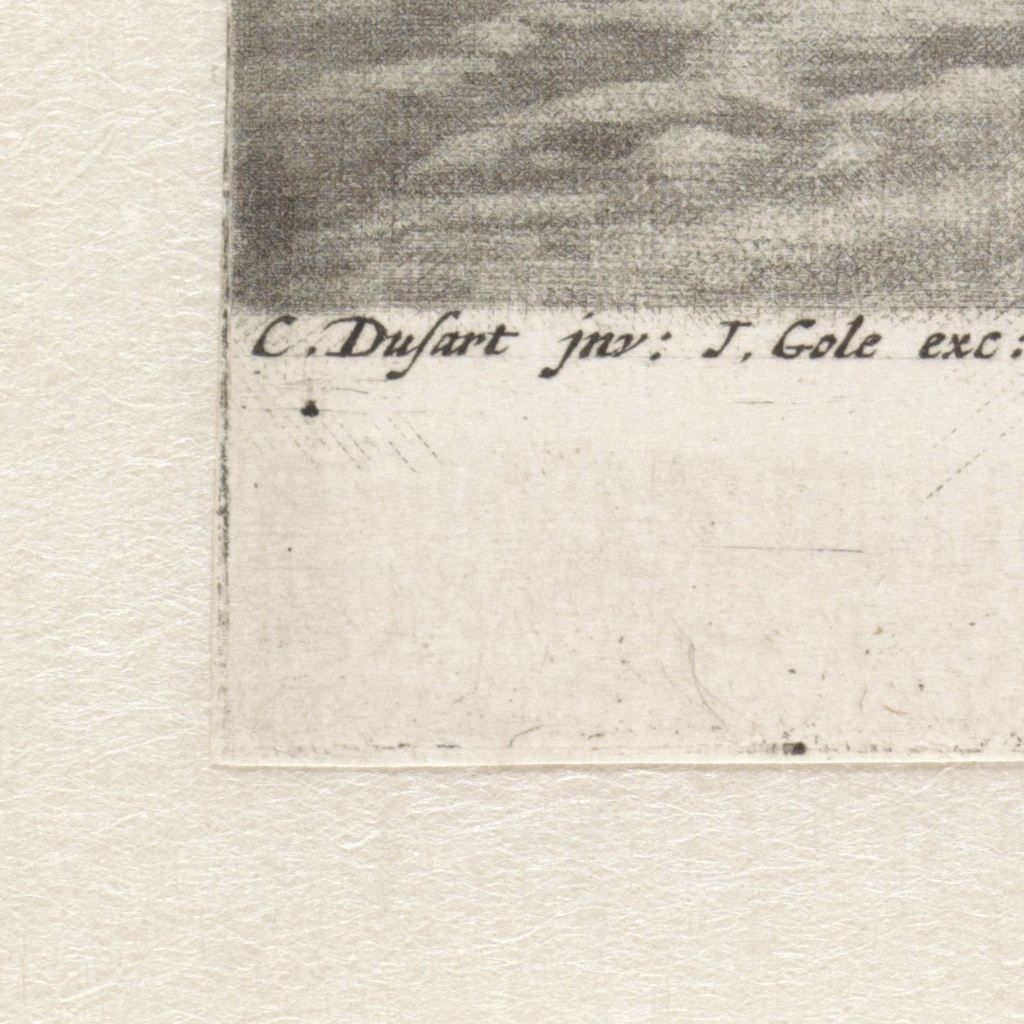 C. Duſart jnv: J. Gole exc: